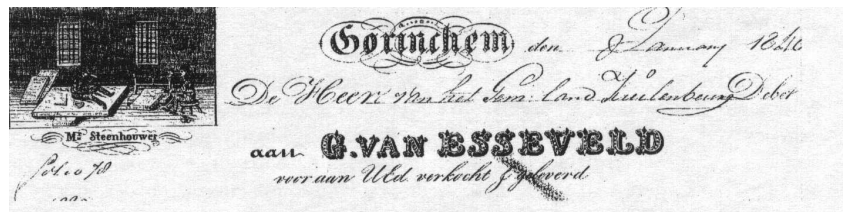 Gorinchem den 8 January 1840
De Heer van het Gem: land Kuilenburg Debet
Mr Steenhouwer
aan G. VAN ESSEVELD
Folio 78
voor aan UEd. verkocht & geleverd